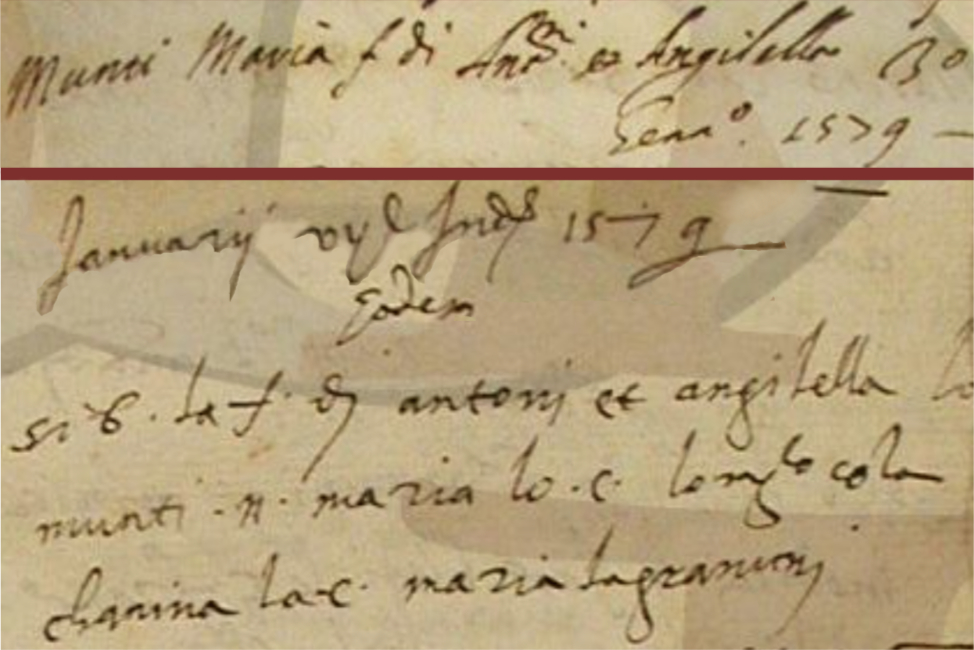 Munti Maria f di Ant.ni et Angilella Bo
Genn.o 1579
Januarij vij Ind. 1579
eodem
si b. la f. di antonj et angilella lo
munti .n. maria lo .c. lo cola
chanina la .c. maria lagranunj